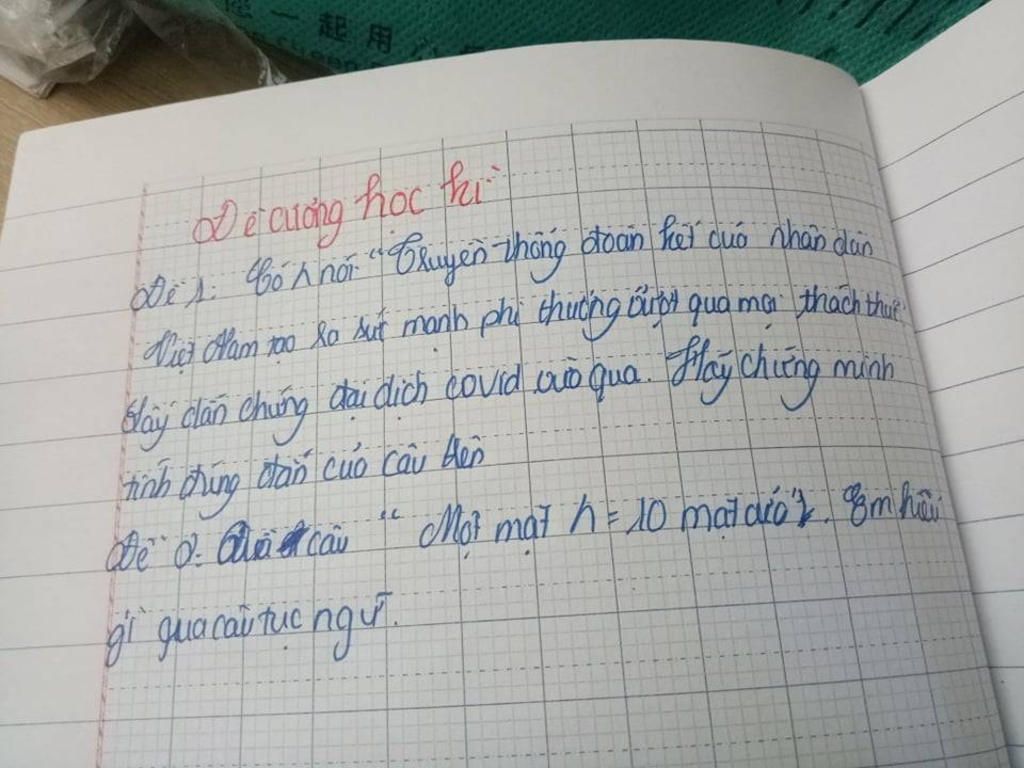 您一起用心
Đề cương học kì
Đề 1: Có ^ nói "Truyền thống đoàn kết của nhân dân
Việt Nam tạo ra sức mạnh phi thường vượt qua mọi thách thức"
Lấy dẫn chứng đại dịch covid vừa qua. Hãy chứng minh
tính đúng đắn của câu trên
Đề 2: câu "Một mặt n = 10 mặt của". Em hiểu
gì qua câu tục ngữ.